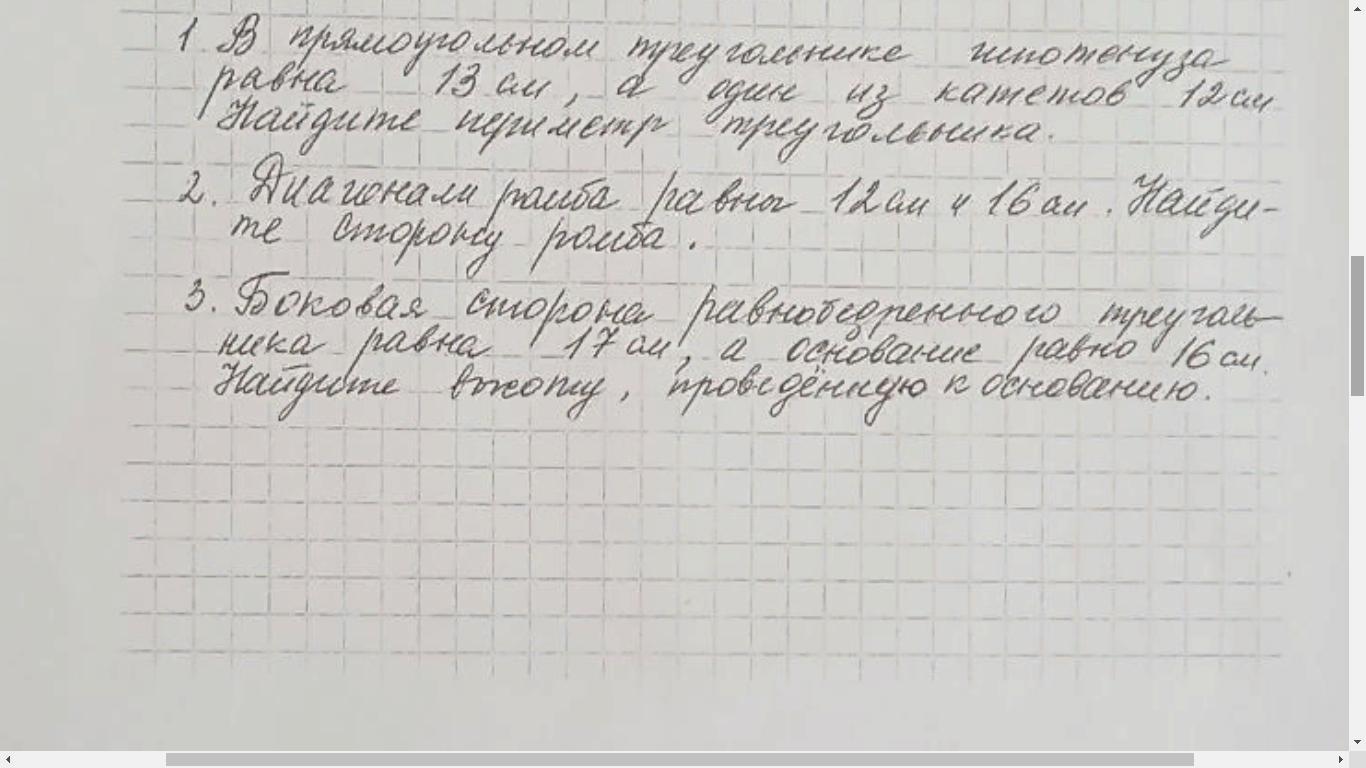 1 В прямоугольном треугольнике гипотенуза
равна 13 см, а один из катетов 12 см
Найдите периметр треугольника.
2. Диагонали ромба равны 12 см и 16 см. Найди-
те сторону ромба.
3. Боковая сторона равнобедренного треуголь-
ника равна 17 см, а основание равно 16 см.
Найдите высоту, проведённую к основанию.